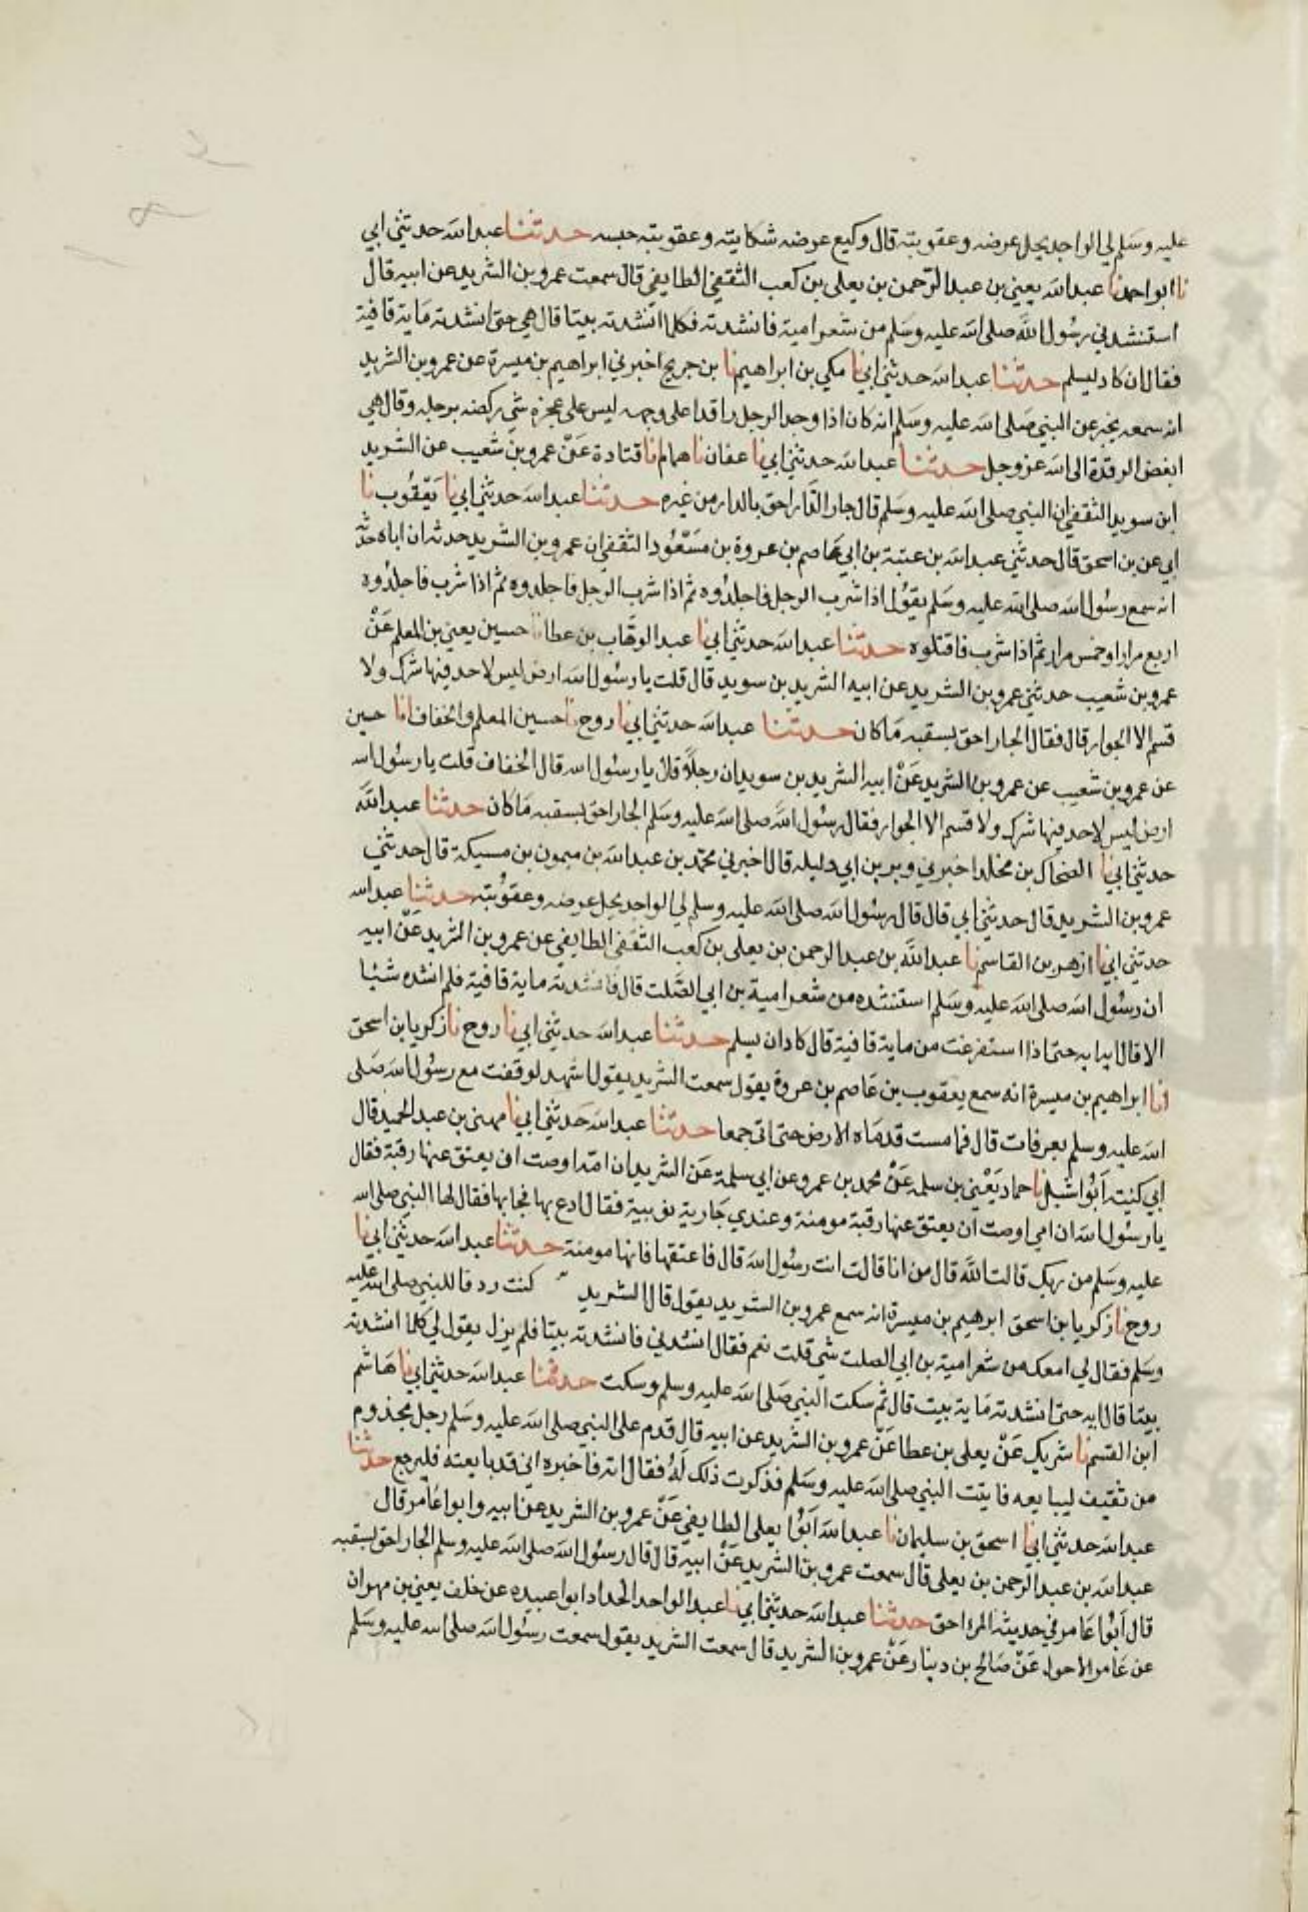 عليه وسلم لي الواجد يحل عرضه وعقوبته قال وكيع عرضه شكايته وعقوبته حبسه حدثنا عبد الله حدثني ابي
نا ابو احمد نا عبد الله يعني بن عبد الرحمن بن يعلى بن كعب الثقفي الطايفي قال سمعت عمرو بن الشريد عن ابيه قال
استنشدني رسول الله صلى الله عليه وسلم من شعر امية فانشدته فكلما انشدته بيتا قال هي حتى انشدته ماية قافية
فقال ان كاد ليسلم حدثنا عبد الله حدثني ابي نا مكي بن ابراهيم نا بن جريج اخبرني ابراهيم بن ميسرة عن عمرو بن الشريد
انه سمعه يخبر عن النبي صلى الله عليه وسلم انه كان اذا وجد الرجل راقدا على وجهه ليس على عجزه شي ركضه برجله وقال هي
ابغض الرقدة الى الله عز وجل حدثنا عبد الله حدثني ابي نا عفان نا همام انا قتادة عن عمرو بن شعيب عن الشريد
ابن سويد الثقفي ان النبي صلى الله عليه وسلم قال جار الدار احق بالدار من غيره حدثنا عبد الله حدثني ابي نا يعقوب نا
ابي عن بن اسحق قال حدثني عبد الله بن عتبة بن ابي عاصم بن عروة بن مسعود الثقفي ان عمرو بن الشريد حدثه ان اباه حدثه
انه سمع رسول الله صلى الله عليه وسلم يقول اذا شرب الرجل فاجلدوه ثم اذا شرب الرجل فاجلدوه ثم اذا شرب فاجلدوه
اربع مرار او خمس مرار ثم اذا شرب فاقتلوه حدثنا عبد الله حدثني ابي نا عبد الوهاب بن عطا نا حسين يعني بن المعلم عن
عمرو بن شعيب حدثني عمرو بن الشريد عن ابيه الشريد بن سويد قال قلت يا رسول الله ارض ليس لاحد فيها شرك ولا
قسم الا الجوار قال فقال الجار احق بسقبه ما كان حدثنا عبد الله حدثني ابي نا روح نا حسين المعلم والخفاف انا حسين
عن عمرو بن شعيب عن عمرو بن الشريد عن ابيه الشريد بن سويد ان رجلا قال يا رسول الله قال الخفاف قلت يا رسول الله
ارض ليس لاحد فيها شرك ولا قسم الا الجوار فقال رسول الله صلى الله عليه وسلم الجار احق بسقبه ما كان حدثنا عبد الله
حدثني ابي نا الضحاك بن مخلد اخبرني وبر بن ابي دليله قال اخبرني محمد بن عبد الله بن ميمون بن مسيكة قال حدثني
عمرو بن الشريد قال حدثني ابي قال قال رسول الله صلى الله عليه وسلم لي الواجد يحل عرضه وعقوبته حدثنا عبد الله
حدثني ابي نا ازهر بن القاسم نا عبد الله بن عبد الرحمن بن يعلى بن كعب الثقفي الطايفي عن عمرو بن الشريد عن ابيه
ان رسول الله صلى الله عليه وسلم استنشده من شعر امية بن ابي الصلت قال فانشدته ماية قافية فلم انشده شيا
الا قال ايه ايه حتى اذا استفرغت من ماية قافية قال كاد ان يسلم حدثنا عبد الله حدثني ابي نا روح نا زكريا بن اسحق
انا ابراهيم بن ميسرة انه سمع يعقوب بن عاصم بن عروة يقول سمعت الشريد يقول اشهد لوقفت مع رسول الله صلى
الله عليه وسلم بعرفات قال فما مست قدماه الارض حتى اتى جمعا حدثنا عبد الله حدثني ابي نا مهنى بن عبد الحميد قال
ابي كنيته ابو اشبل نا حماد يعني بن سلمه عن محمد بن عمرو عن ابي سلمة عن الشريد ان امه اوصت ان يعتق عنها رقبة فقال
يا رسول الله ان امي اوصت ان يعتق عنها رقبة مومنة وعندي جارية نوبية فقال ادع بها فجابها فقال لها النبي صلى الله
عليه وسلم من ربك قالت الله قال من انا قالت انت رسول الله قال فاعتقها فانها مومنة حدثنا عبد الله حدثني ابي نا
روح نا زكريا بن اسحق ابرهيم بن ميسرة انه سمع عمرو بن الشريد يقول قال الشريد كنت ردفا للنبي صلى الله عليه
وسلم فقال لي امعك من شعر امية بن ابي الصلت شي قلت نعم فقال انشدني فانشدته بيتا فلم يزل يقول لي كلما انشدته
بيتا قال ايه حتى انشدته ماية بيت قال ثم سكت النبي صلى الله عليه وسلم وسكت حدثنا عبد الله حدثني ابي نا هاشم
ابن القسم نا شريك عن يعلى بن عطا عن عمرو بن الشريد عن ابيه قال قدم على النبي صلى الله عليه وسلم رجل مجذوم
من ثقيف ليبايعه فاتيت النبي صلى الله عليه وسلم فذكرت ذلك له فقال اته فاخبره اني قد بايعته فليرجع حدثنا
عبد الله حدثني ابي نا اسحق بن سليمان نا عبد الله ابو يعلى الطايفي عن عمرو بن الشريد عن ابيه وابوا عامر قال
عبد الله بن عبد الرحمن بن يعلى قال سمعت عمرو بن الشريد عن ابيه قال قال رسول الله صلى الله عليه وسلم الجار احق بسقبه
قال ابوا عامر في حديثه المرا احق حدثنا عبد الله حدثني ابي نا عبد الواحد الحداد ابوا عبيده عن خلف يعني بن مهران
عن عامر الاحول عن صالح بن دينار عن عمرو بن الشريد قال سمعت الشريد يقول سمعت رسول الله صلى الله عليه وسلم